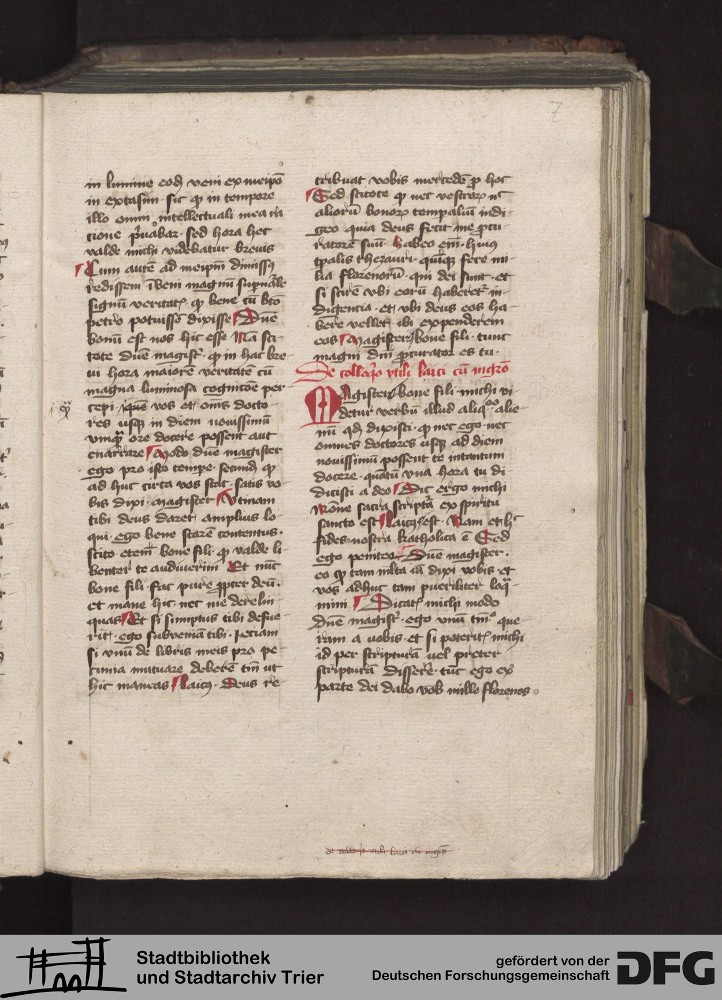 7
in lumine eodē veni ex meip̄o
in extasim · sic qͥ in tempore
illo omni intellectuali mea ra
cione p̄uabar · sed hora hec
valde michi videbatur brevis
Cum autē ad meip̄m dimissꝫ
redissem · īveni magnū supnāle
signū veritatꝭ · qͥ bene cū bt̄o
petro potuissē dixisse Dn̄e
bonū est nos hic esse Nā sci
tote dn̄e magist̄ · qͥ in hac bre
ui hora maiorē veritatē cū
magna luminosa cognicōne per
cepi · quē vos et om̄s docto
res usqꝫ in diem novissimū
vnqͣꝫ ore docere possent aut
enarrare Modo dn̄e magister
ego pro isto tempe · secundꝫ qͥ
ad huc circa vos stat · satis vo
bis dixi · magister Utinam
tibi deus daret amplius lo
qui · ego bene starē contentus ·
scito etem̄ bone fili · qͥ valde li
benter te audiuerim Et nūc
bone fili · fac pure ꝓpter deū ·
et mane hic · nec me derelin
quas Et si sumptus tibi defue
rit · ego subveniā tibi · Feciam
si vnū de libris meis pro pe
cunia mutuare deberē tn̄ ut
hic maneas Laicꝰ · Deus re
tribuat vobis mercedē ꝓ hoc
Sed scitote qͥ nec vestrorꝫ nͨ
aliorū bonorꝫ tempaliū indi
geo quia deus fecit me ꝓcu
ratorē suū · habeo em̄ · huiꝰ
tpalis thezauri · quīqꝫ fere mi
lia florenorū · qui dei sunt · et
si scirē vbi eorū haberetᷣ in
digencia · et vbi deus eos ha
bere vellet · ibi expenderem
eos Magister bone fili · tunc
magni dn̄i ꝓcurator es tu ·
De colloq̄o vtili laici cū mgr̄o
Magister bone fili · michi vi
detur verbū illud aliqͦ alie
nū qd̄ dixisti · qͥ nec ego nec
omnes doctores usqꝫ ad diem
novissimū possent te intantum
docere · quātū vna hora tu di
dicisti a deo Dic ergo michi
nōne sacra scriptā ex spiritu
sancto est Laicꝰ est · Nam et hͨ
fides nostra katholica ē Sed
ego peniteo Dūe magister ·
eo qͥ tam mlta iā dixi vobis · et
vos adhuc tam pueriliter loq̄
mini Dicatꝭ michi modo
dn̄e magist̄ · ego vnū tm̄ que
ram a uobis · et si poteritꝭ michi
id per scripturā uel preter
scripturā dissere · tūc ego ex
parte dei dabo vob mille florenos
de colloq̄o vtili laici cū mgr̄o
Stadtbibliothek
und Stadtarchiv Trier
gefördert von der
Deutschen Forschungsgemeinschaft
DFG